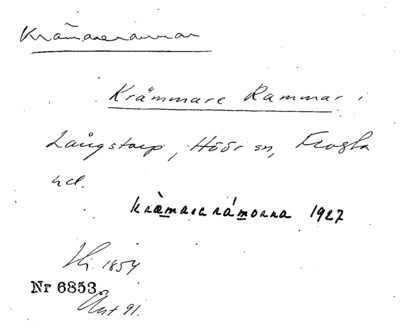 Krämareramar
Krämmare Rammar i
Långstorp, Höör sn, Frosta
hd.
kræmararámorna 1927
1854
Nr 6853
91.